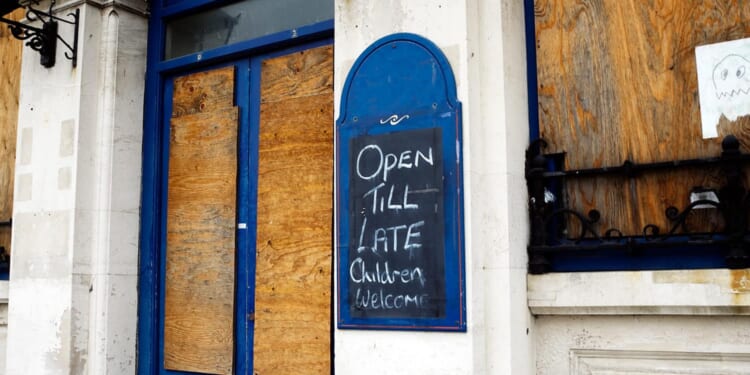 Open
Till
Late
Children
Welcome